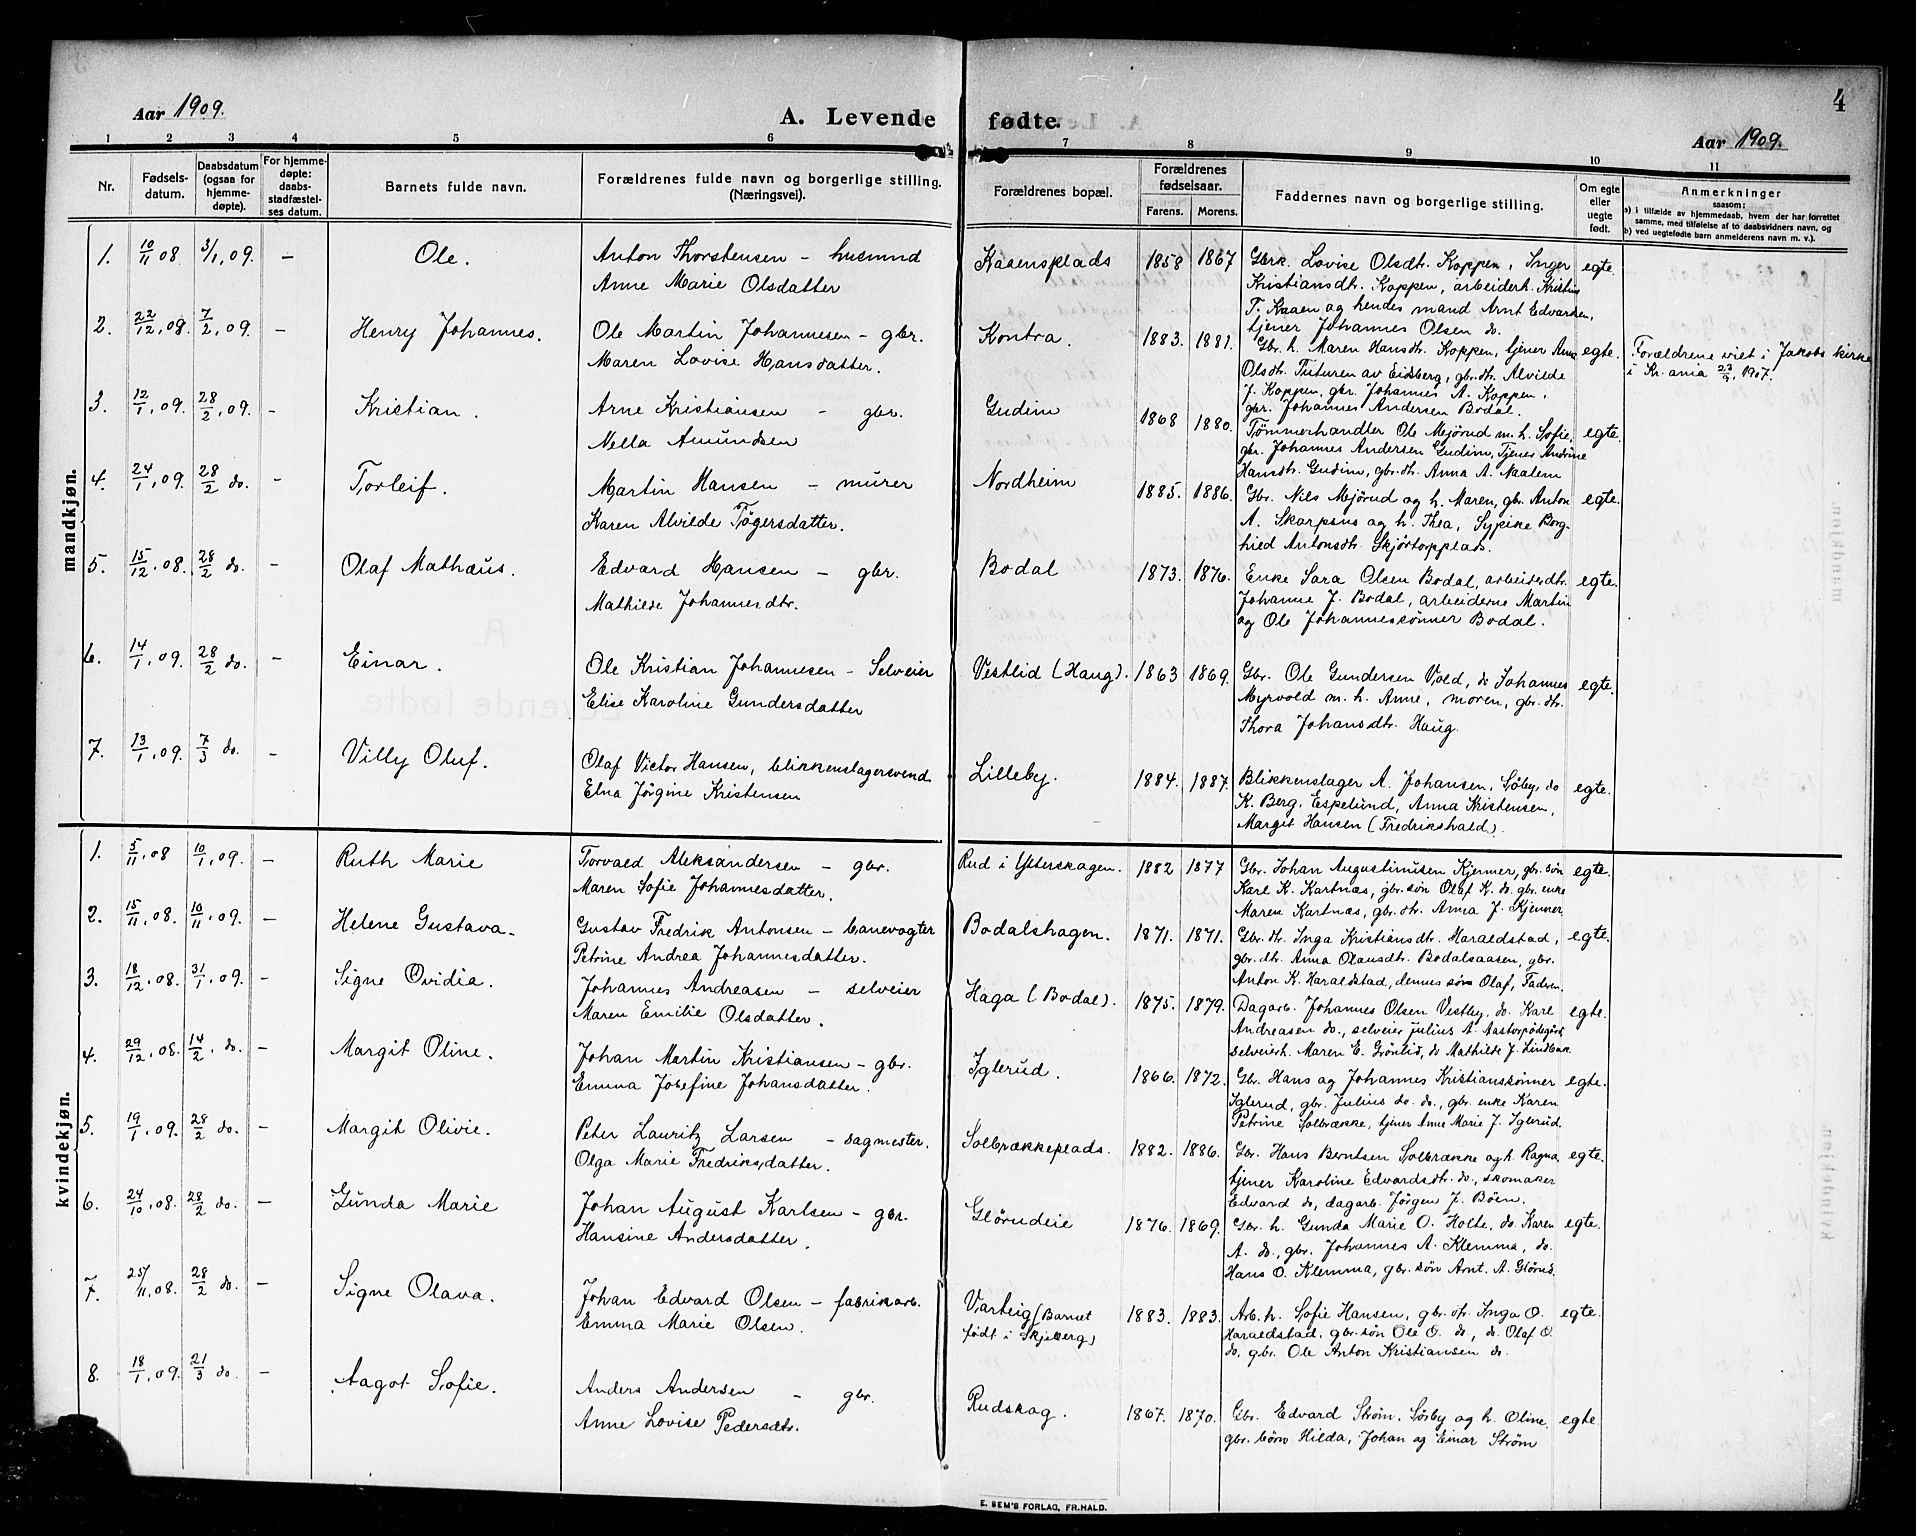 4
Aar 1909.
A. Levende fødte.
Aar 1909.
1 2 3 4 5 6 7 8 9 10 11
Nr.
Fødsels-
datum.
Daabsdatum
(ogsaa for
hjemme-
døpte).
For hjemme-
døpte:
daabs-
stadfæstel-
ses datum.
Barnets fulde navn.
Forældrenes fulde navn og borgerlige stilling.
(Næringsvei).
Forældrenes bopæl.
Forældrenes
fødselsaar.
Farens. Morens.
Faddernes navn og borgerlige stilling.
Om egte
eller
uegte
født.
Anmerkninger
saasom:
a) i tilfælde av hjemmedaab, hvem der har forrettet
samme, med tilføielse af to daabsvidners navn, og
b) ved uegtefødte barn anmelderens navn m. v.).
mandkjøn.
1. 10/11 08. 3/1, 09. — Ole. Anton Thorstensen — husmnd
Anne Marie Olsdatter
Kaaensplads 1858 1867 Gbrk. Lovise Olsdt. Koppen, Inger egte.
Kristiansdt. Koppen, arbeiderh. Kristine
T. Kaaen og hendes mand Arnt Edvardsen,
tjener Johannes Olsen do.
2. 22/12, 08. 7/2, 09. — Henry Johannes. Ole Martin Johannesen — gbr.
Maren Lovise Hansdatter.
Kontra. 1883. 1881. Gbr. h. Maren Hansdt. Koppen, tjener Anna egte.
Olsdt. Tuturen av Eidsberg, gbr. dtr. Alvilde
J. Koppen, gbr. Johannes A. Koppen,
gbr. Johannes Andersen Bodal.
Forældrene viet i Jakobs kirke
i Kr.ania 23/, 1907.
3. 12/1, 09. 28/2, 09. — Kristian. Arne Kristiansen — gbr.
Nella Amundsen
Gudim 1868 1880. Tømmerhandler Ole Mejørud m. h. Sofie, egte.
gbr. Johannes Andersen Gudim, Tjener Andrine
Hansdt. Gudim, gbr. dtr. Anna A. Naalem
4. 24/1, 09. 28/2 do. — Torleif. Martin Hansen — murer
Karen Alvilde Tøgersdatter.
Nordheim 1885. 1886. Gbr. Nils Mejørud og h. Maren, gbr. Anton egte.
A. Skarpsnø og h. Thea, Sypike Borg-
hild Antonsdt. Skjørtorpplads.
5. 15/12, 08. 28/2 do. — Olaf Mathæus. Edvard Hansen — gbr.
Mathilde Johannesdtr.
Bodal 1873. 1876. Enke Sara Olsen Bodal, arbeiderdtr. egte.
Johanne J. Bodal, arbeiderne Martin
og Ole Johannessønner Bodal.
6. 14/1, 09. 28/2 do. — Einar. Ole Kristian Johannesen — Selveier
Elise Karoline Gundersdatter
Vestlid (Haug). 1863 1869. Gbr. Ole Gundersen Vold, do Johannes egte.
Myrvold m. h. Anne, moren, gbr. dtr.
Thora Johansdt. Haug.
7. 13/1, 09. 7/3 do. — Villy Oluf. Olaf Victor Hansen, blikkenslagersvend.
Elna Jørgine Kristensen
Lilleby. 1884. 1887. Blikkenslager A. Johansen, Søby, do egte.
K. Berg, Espelund, Anna Kristensen,
Margit Hansen (Fredrikshald).
kvindekjøn.
1. 5/11, 08 10/1, 09. — Ruth Marie Torvald Aleksandersen — gbr.
Maren Sofie Johannesdatter.
Rud i Ytterskogen. 1882 1877 Gbr. Johan Augustinusen Kjenner, gbr. søn egte.
Karl K. Kartnæs, gbr. søn Olaf K. do. gbr. enke
Maren Kartnæs, gbr. dtr. Anna J. Kjenner
2. 15/11, 08. 10/11, 09. — Helene Gustava. Gustav Fredrik Antonsen — banevogter
Petrine Andrea Johannesdatter.
Bodalshagen. 1871. 1871. Gbr. dtr. Inga Kristiansdt. Haraldstad, egte.
gbr. dtr. Anna Olausdt. Bodalsaasen, gbr.
Anton K. Haraldstad, dennes søn Olaf, Fadren.
3. 18/12, 08. 31/1, 09. — Signe Ovidia. Johannes Andreasen — selveier
Maren Emilie Olsdatter.
Haga (Bodal). 1875. 1879. Dagarb. Johannes Olsen Vestby, do. Karl egte.
Andreasen do., selveier Julius A. Aastorpødegård
selveierh. Maren E. Grønlid, do Mathilde J. Lindbæk
4. 29/12, 08. 14/2, do. — Margit Oline. Johan Martin Kristiansen — gbr.
Emma Josefine Johansdatter.
Iglerud. 1866. 1872. Gbr. Hans og Johannes Kristianssønner egte.
Iglerud, gbr. Julius do. do., gbr. enke Karen
Petrine Solbrække, tjener Anne Marie J. Iglerud.
5. 19/1, 09. 28/2 do. — Margit Olivie. Peter Lauritz Larsen — sagmester.
Olga Marie Fredriksdatter.
Solbrækkeplads. 1882. 1886. Gbr. Hans Berntsen Solbrække og h. Ragna, egte.
tjener Karoline Edvardsdt. do., skomaker
Edvard do, dagarb. Jørgen J. Bøen.
6. 24/10, 08. 28/2 do. — Gunda Marie Johan August Karlsen — gbr.
Hansine Andersdatter.
Glørudeie 1876. 1869. Gbr. h. Gunda Marie O. Holte, do. Karen egte.
A. do., gbr. Johannes A. Klemma, do.
Hans O. Klemma, gbr. søn Arnt. A. Glørud.
7. 25/11, 08. 28/2 do. — Signe Olava. Johan Edvard Olsen — fabrikarb.
Emma Marie Olsen.
Varteig (Barnet
født i Skjeberg) 1883. 1883. Arb. h. Sofie Hansen, gbr. dtr. Inga O. egte.
Haraldstad, gbr. søn Ole O. do, do. Olaf O.
do. gbr. Ole Anton Kristiansen do.
8. 18/1, 09. 21/3 do. — Aagot Sofie. Anders Andersen — gbr.
Anne Lovise Pedersdtr.
Rudskog. 1867. 1870. Gbr. Edvard Strøm, Sørby og h. Oline. egte.
gbr. børn Hilda, Johan og Einar Strøm
E. SEM'S FORLAG, FR.HALD.